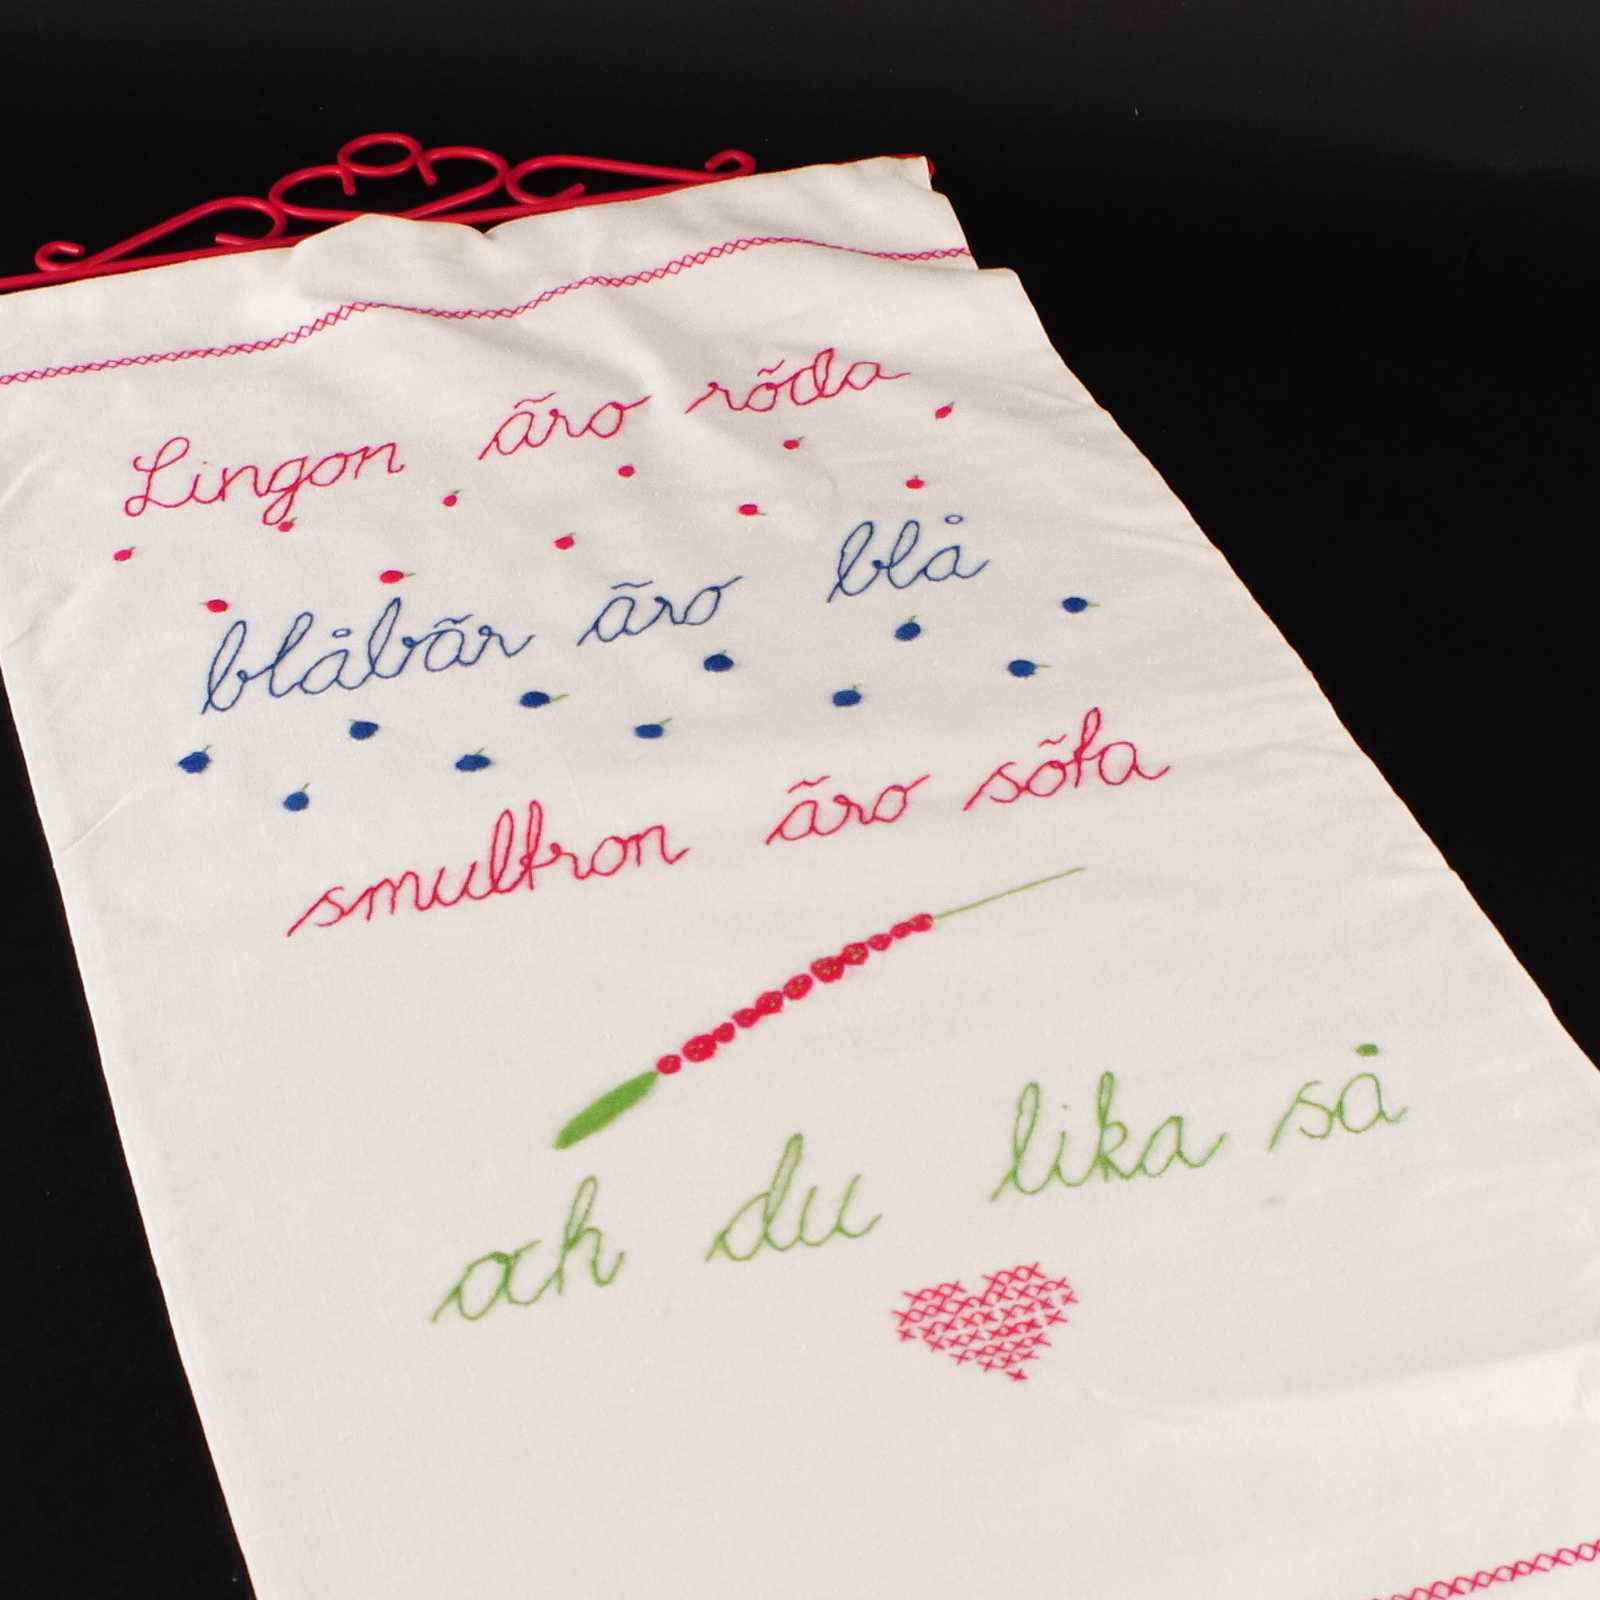 Lingon äro röda
blåbär äro blå
smultron äro söta
och du lika så